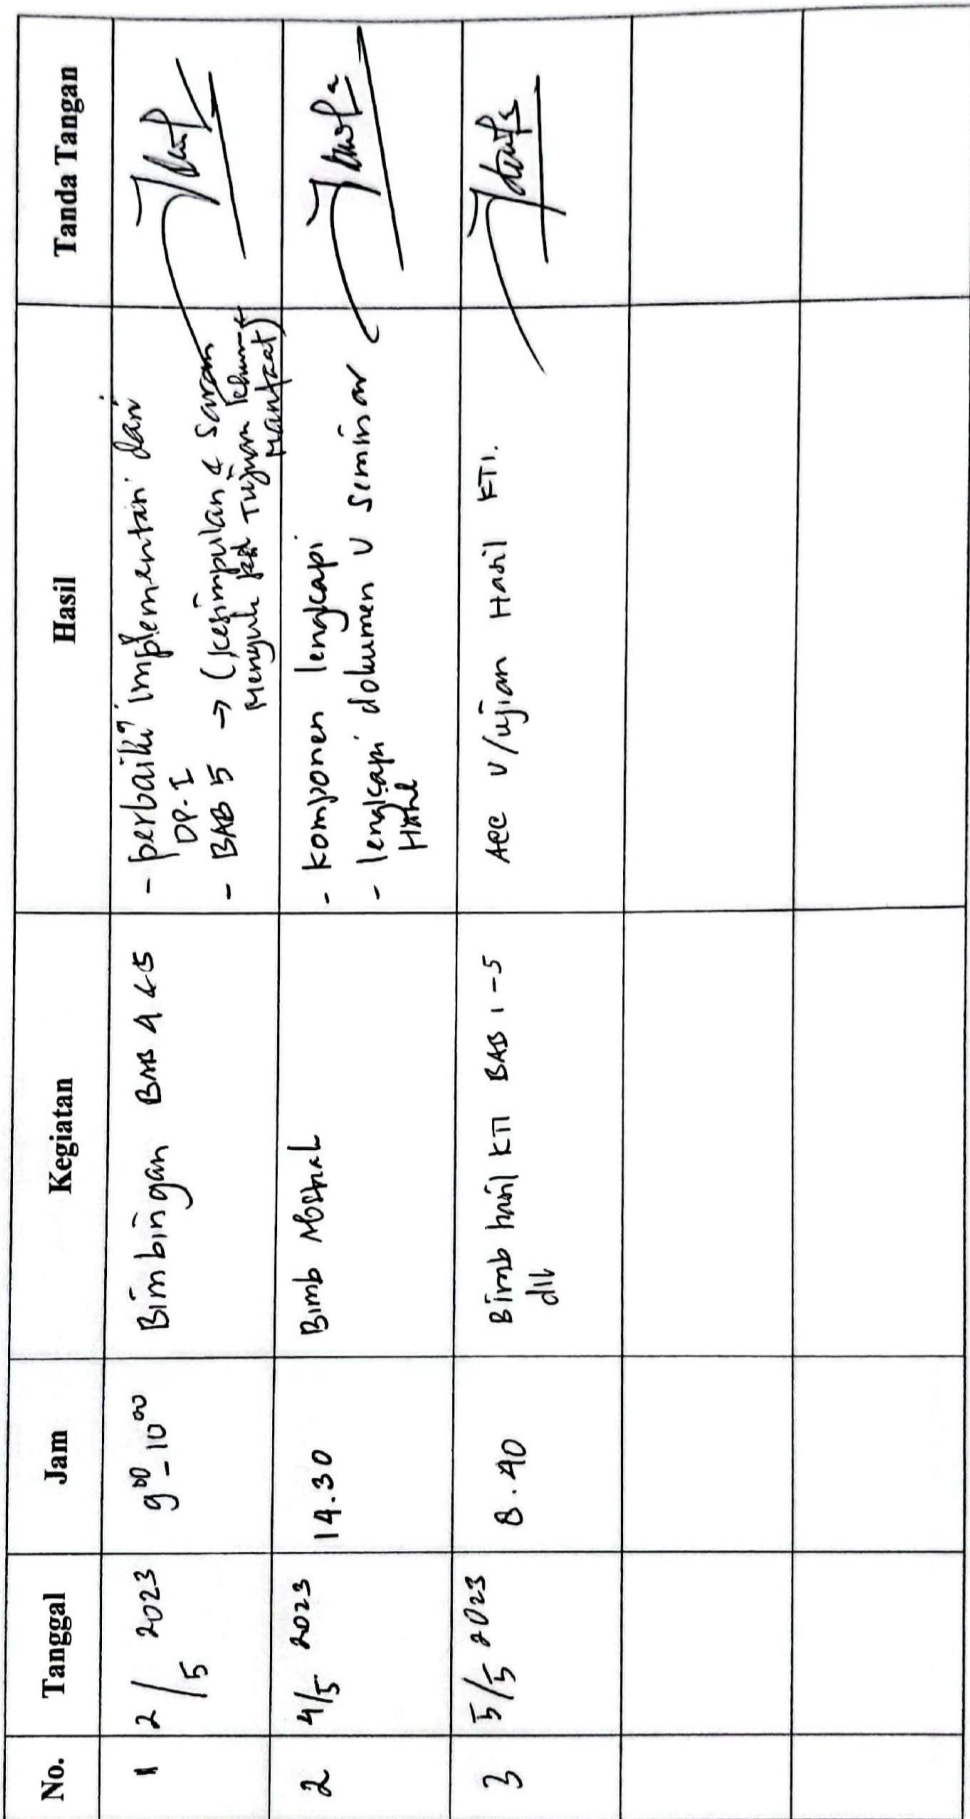 No. Tanggal Jam Kegiatan Hasil Tanda Tangan
1 2/5 2023 9⁰⁰-10⁰⁰ Bimbingan BAB 4 & 5
- perbaiki² implementasi dari
DP.I
- BAB 5 → (kesimpulan & Saran
Tujuan
Manfaat)
2 4/5 2023 14.30 Bimb
- komponen lengkapi
- lengkapi dokumen U seminar
Hasil
3 5/5 2023 8.40 Bimb hasil KTI BAB 1-5
dll
ACC U/ujian Hasil KTI.